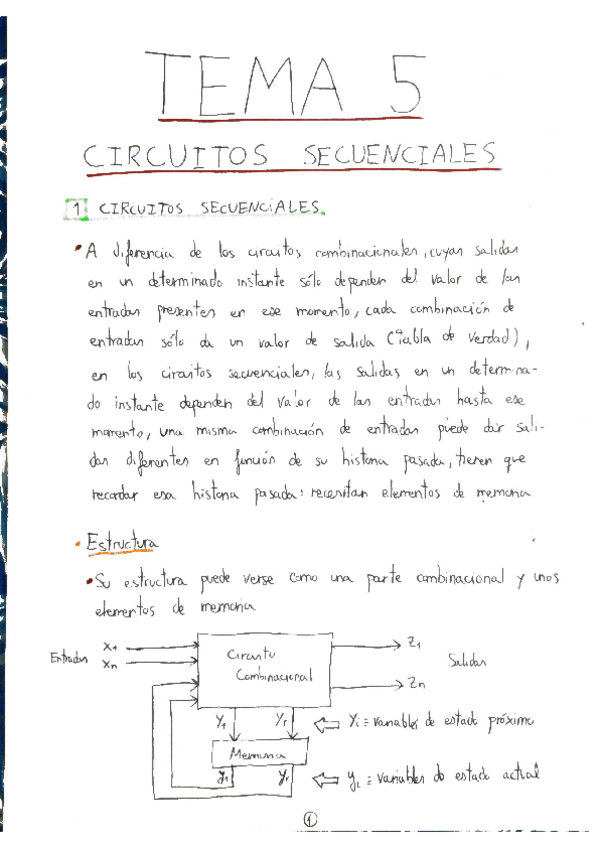 TEMA 5
CIRCUITOS SECUENCIALES
1 CIRCUITOS SECUENCIALES.
• A diferencia de los circuitos combinacionales, cuyas salidas
en un determinado instante sólo dependen del valor de las
entradas presentes en ese momento, cada combinación de
entradas sólo da un valor de salida (tabla de verdad),
en los circuitos secuenciales, las salidas en un determina-
do instante dependen del valor de las entradas hasta ese
momento, una misma combinación de entradas puede dar sali-
das diferentes en función de su historia pasada, tienen que
recordar esa historia pasada: necesitan elementos de memoria
• Estructura
• Su estructura puede verse como una parte combinacional y unos
elementos de memoria
Entradas X1 Xn
Circuito
Combinacional
Z1
Zn
Salidas
Y1 Yr
Yi ≡ variables de estado próximo
Memoria
y1 yr
yi ≡ variables de estado actual
1